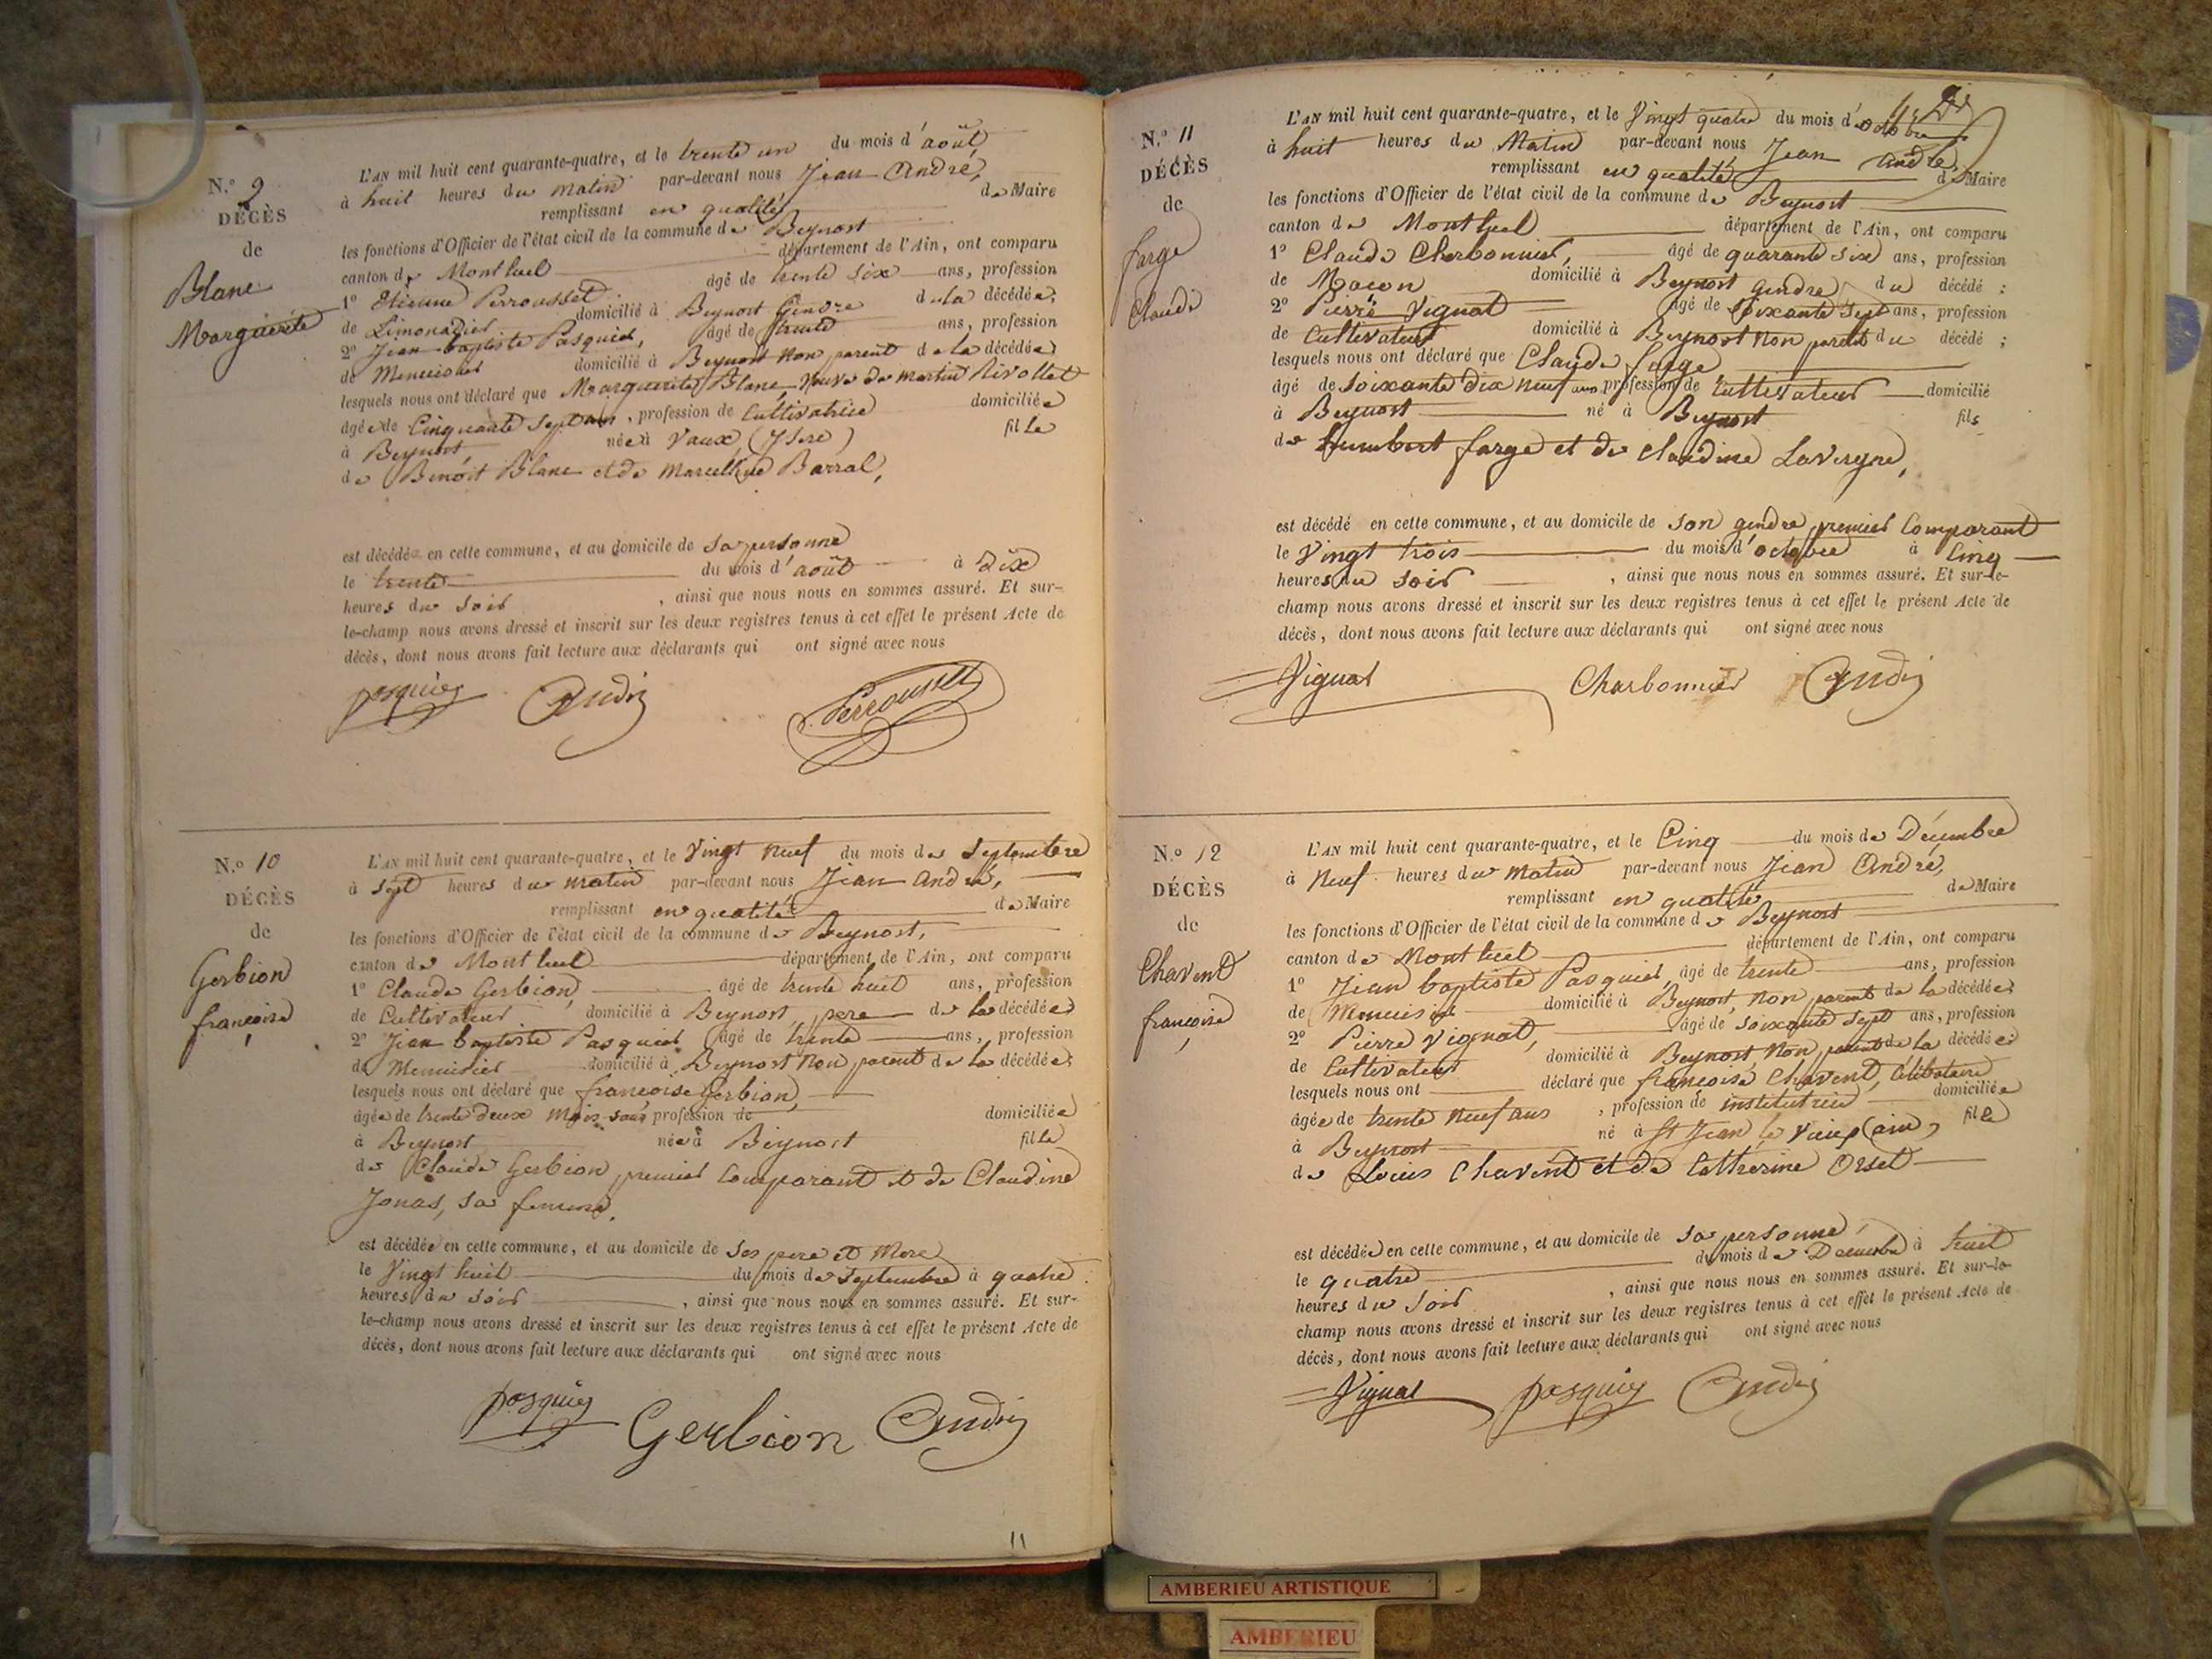 N.º 9
DÉCÈS
de
Blanc
Marguerite
L'AN mil huit cent quarante-quatre, et le trente un du mois d'août
à huit heures du matin par-devant nous Jean André,
remplissant en qualité de Maire
les fonctions d'Officier de l'état civil de la commune de Beynost
canton de Montluel département de l'Ain, ont comparu
1º Etienne Perrousset âgé de trente six ans, profession
de Limonadier domicilié à Beynost Gendre de la décédée;
2º Jean baptiste Pasquier, âgé de trente ans, profession
de Menuisier domicilié à Beynost non parent de la décédée;
lesquels nous ont déclaré que Marguerite Blanc, veuve de Martin Rivollet
âgée de Cinquante sept ans, profession de Cultivatrice domiciliée
à Beynost, née à Vaux, (Isere) fille
de Benoit Blanc et de Marcelline Barral,
est décédée en cette commune, et au domicile de sa personne
le trente du mois d'août à Dix
heures du soir , ainsi que nous nous en sommes assuré. Et sur-
le-champ nous avons dressé et inscrit sur les deux registres tenus à cet effet le présent Acte de
décès, dont nous avons fait lecture aux déclarants qui ont signé avec nous
pasquier André Perrousset
N.º 10
DÉCÈS
de
Gerbion
françoise
L'AN mil huit cent quarante-quatre, et le Vingt neuf du mois de Septembre
à sept heures du matin par-devant nous Jean André,
remplissant en qualité de Maire
les fonctions d'Officier de l'état civil de la commune de Beynost,
canton de Montluel département de l'Ain, ont comparu
1º Claude Gerbion, âgé de trente huit ans, profession
de Cultivateur domicilié à Beynost, pere de la décédée;
2º Jean baptiste Pasquier âgé de trente ans, profession
de Menuisier domicilié à Beynost Non parent de la décédée;
lesquels nous ont déclaré que françoise Gerbion,
âgée de trente deux Mois, sans profession de domiciliée
à Beynost née à Beynost fille
de Claude Gerbion, premier Comparant et de Claudine
Jonas, sa femme,
est décédée en cette commune, et au domicile de ses pere et Mere
le Vingt huit du mois de Septembre à quatre
heures du soir , ainsi que nous nous en sommes assuré. Et sur-
le-champ nous avons dressé et inscrit sur les deux registres tenus à cet effet le présent Acte de
décès, dont nous avons fait lecture aux déclarants qui ont signé avec nous
pasquier Gerbion André
11
N.º 11
DÉCÈS
de
farge
Claude
L'AN mil huit cent quarante-quatre, et le Vingt quatre du mois d'octobre
à huit heures du Matin par-devant nous Jean André,
remplissant en qualité de Maire
les fonctions d'Officier de l'état civil de la commune de Beynost
canton de Montluel département de l'Ain, ont comparu
1º Claude Charbonnier, âgé de quarante six ans, profession
de Maçon domicilié à Beynost gendre du décédé ;
2º Pierre Vignat âgé de soixante sept ans, profession
de Cultivateur domicilié à Beynost Non parent du décédé ;
lesquels nous ont déclaré que Claude farge
âgé de soixante dix neuf ans profession de Cultivateur domicilié
à Beynost né à Beynost fils
de humbert farge et de Claudine Lavergne,
est décédé en cette commune, et au domicile de son gendre premier Comparant
le Vingt trois du mois d'octobre à Cinq
heures du soir , ainsi que nous nous en sommes assuré. Et sur-le-
champ nous avons dressé et inscrit sur les deux registres tenus à cet effet le présent Acte de
décès, dont nous avons fait lecture aux déclarants qui ont signé avec nous
Vignat Charbonnier André
N.º 12
DÉCÈS
de
Chavent
françoise
L'AN mil huit cent quarante-quatre, et le Cinq du mois de Décembre
à Neuf heures du Matin par-devant nous Jean André,
remplissant en qualité de Maire
les fonctions d'Officier de l'état civil de la commune de Beynost
canton de Montluel département de l'Ain, ont comparu
1º Jean baptiste Pasquier, âgé de trente ans, profession
de Menuisier domicilié à Beynost Non parent de la décédée;
2º Pierre Vignat, âgé de soixante sept ans, profession
de Cultivateur domicilié à Beynost Non parent de la décédée;
lesquels nous ont déclaré que françoise Chavent, Célibataire
âgée de trente Neuf ans , profession de institutrice domiciliée
à Beynost né à St Jean le Vieux (ain) fille
de Louis Chavent et de Catherine Orset
est décédée en cette commune, et au domicile de sa personne
le quatre du mois de Décembre à huit
heures du soir , ainsi que nous nous en sommes assuré. Et sur-le-
champ nous avons dressé et inscrit sur les deux registres tenus à cet effet le présent Acte de
décès, dont nous avons fait lecture aux déclarants qui ont signé avec nous
Vignat pasquier André
AMBERIEU ARTISTIQUE
AMBERIEU